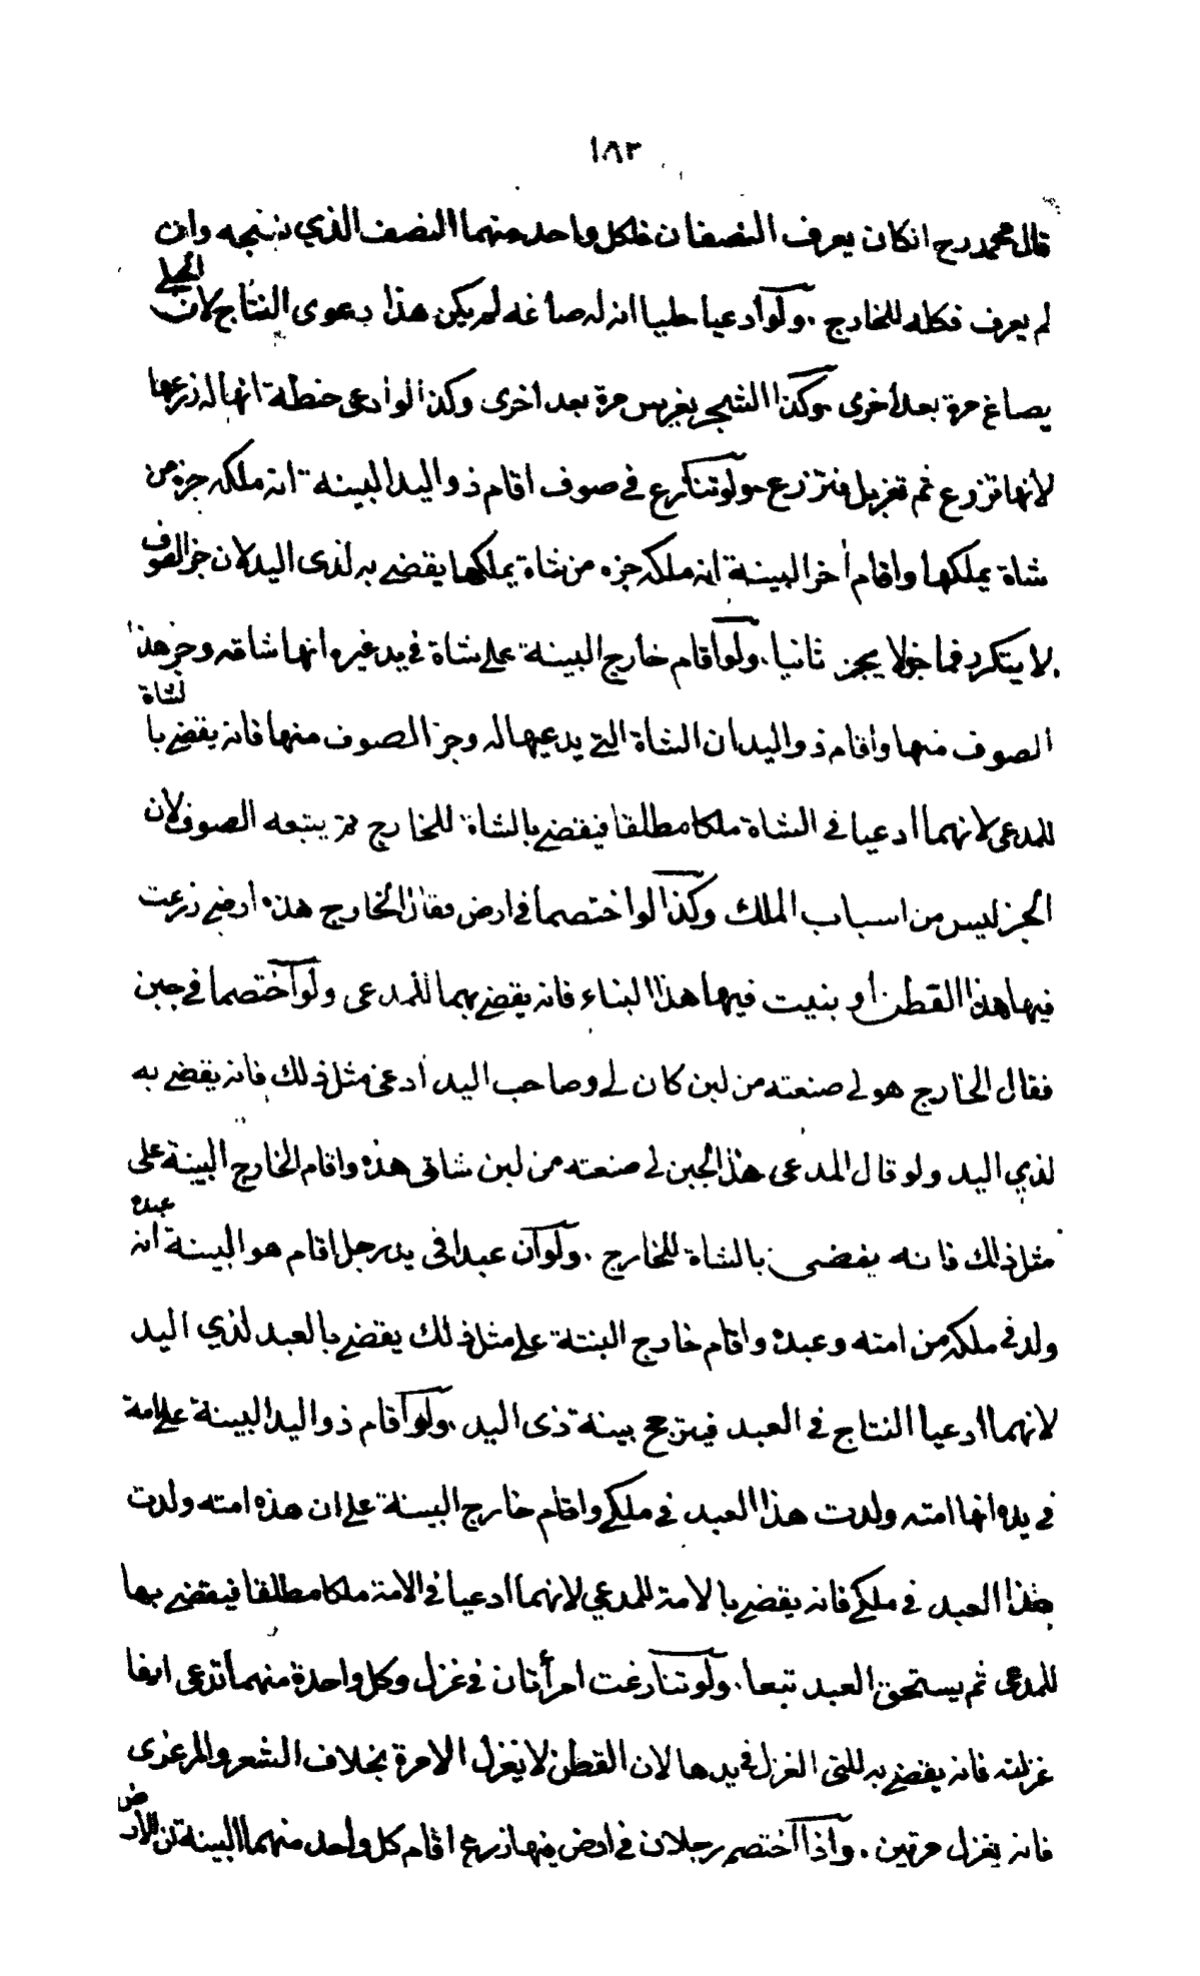 ١٨٣
قال محمد رح انكان يعرف النصفان فلكل واحد منهما النصف الذي ينسجه وان
لم يعرف فكله للخارج . ولو ادعيا حليا انه له صاغه لم يكن هذا دعوى النتاج لان الحلي
يصاغ مرة بعد أخرى وكذا الشجر يغرس مرة بعد أخرى وكذا لو ادعى حنطة انها له زرعها
لأنها تزرع ثم تغربل فتزرع ولو تنازع في صوف اقام ذو اليد البينة انه ملكه جزه من
شاة يملكها واقام أخر البينة انه ملكه جزه من شاة يملكها يقضى به لذى اليد لان جز الصوف
لا يتكرر فما جز لا يجز ثانيا . ولو اقام خارج البينة على شاة في يد غيره انها شاته وجز هذا
الصوف منها واقام ذو اليد ان الشاة التي يدعيها له وجز الصوف منها فانه يقضى بالشاة
للمدعى لانهما ادعيا في الشاة ملكا مطلقا فيقضى بالشاة للخارج ثم يتبعه الصوف لان
الجز ليس من اسباب الملك وكذا لو اختصما في ارض فقال الخارج هذه أرضى زرعت
فيها هذا القطن أو بنيت فيها هذا البناء فانه يقضى بهما للمدعى ولو اختصما في جبن
فقال الخارج هو لى صنعته من لبن كان لى وصاحب اليد أدعى مثل ذلك فانه يقضى به
لذي اليد ولو قال المدعى هذا الجبن لى صنعته من لبن شاتى هذه واقام الخارج البينة على
مثل ذلك فانه يقضى بالشاة للخارج . ولو ان عبدا فى يد رجل اقام هو البينة انه عبده
ولد في ملكه من امته وعبده واقام خارج البينة على مثل ذلك يقضى بالعبد لذي اليد
لانهما ادعيا النتاج في العبد فيترجح بينة ذى اليد . ولو اقام ذو اليد البينة على امة
في يده انها امته ولدت هذا العبد في ملكى واقام خارج البينة على ان هذه امته ولدت
هذا العبد في ملكى فانه يقضى بالامة للمدعي لانهما ادعيا في الامة ملكا مطلقا فيقضى بها
للمدعى ثم يستحق العبد تبعا . ولو تنازعت امرأتان في غزل وكل واحدة منهما تدعى انها
غزلته فانه يقضى به للتى الغزل في يدها لان القطن لا يغزل الا مرة بخلاف الشعر والمرعزى
فانه يغزل مرتين . واذا اختصم رجلان في ارض فيها زرع اقام كل واحد منهما البينة ان الارض